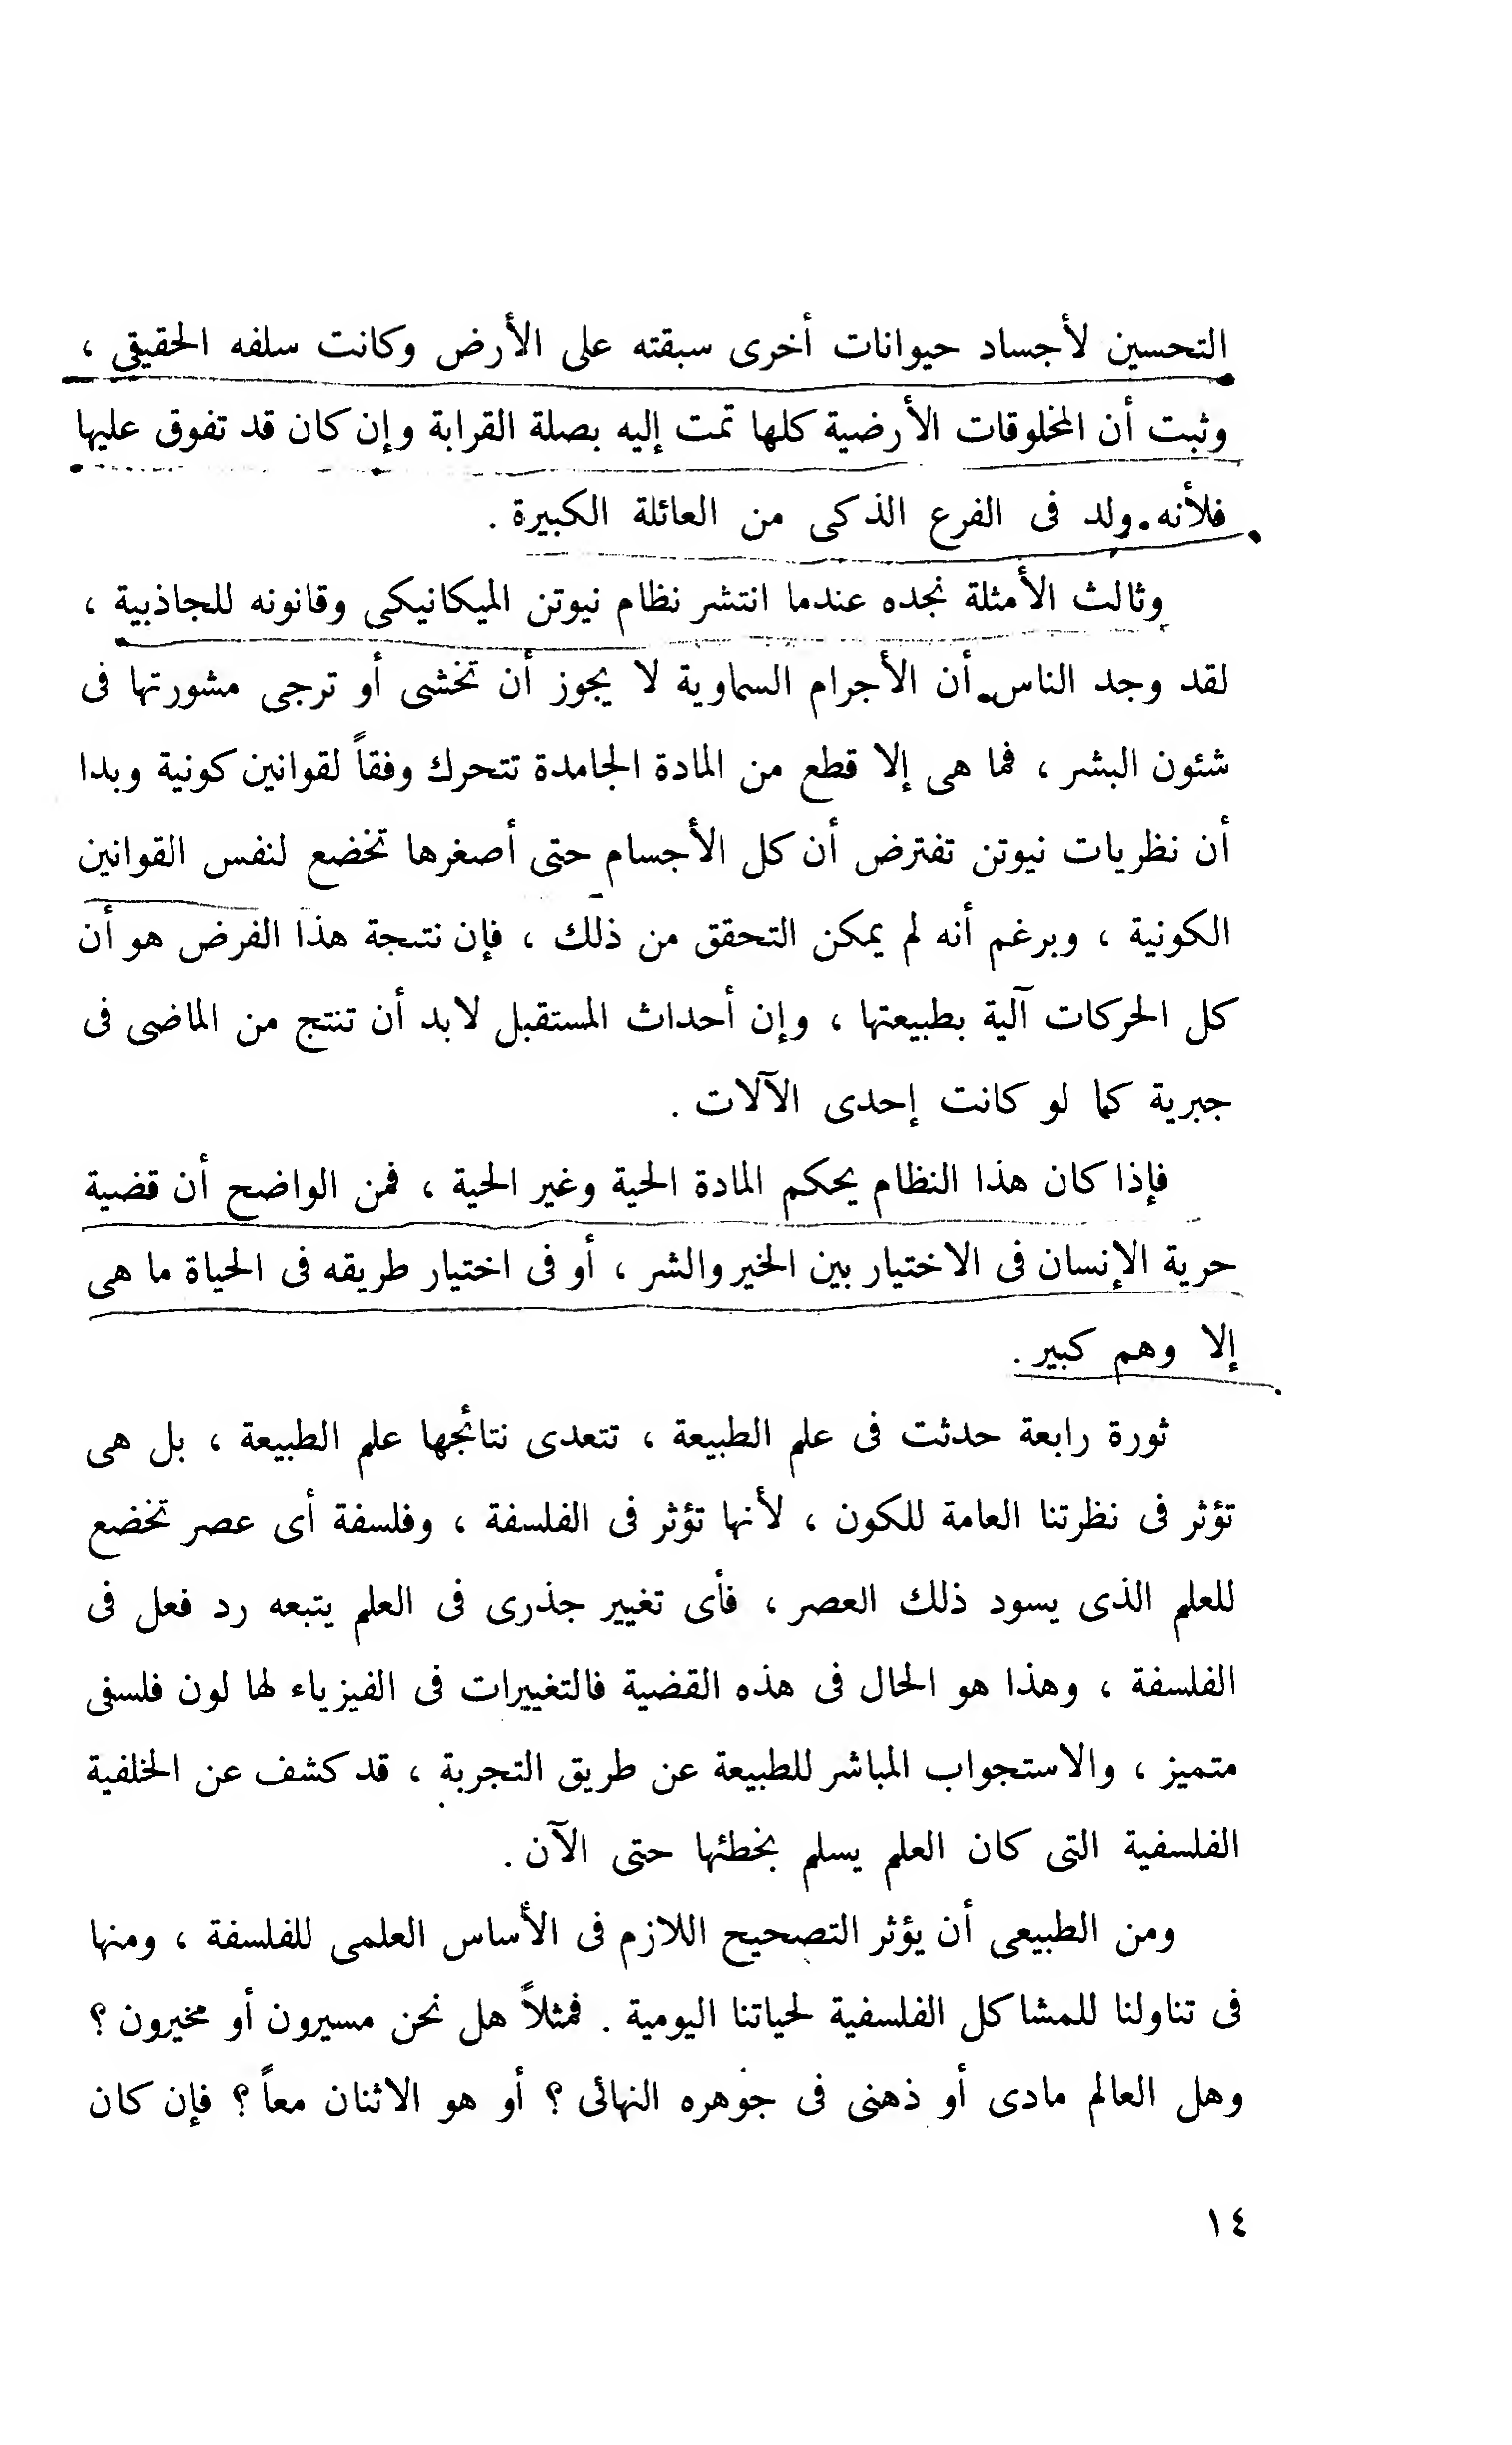 التحسين لأجساد حيوانات أخرى سبقته على الأرض وكانت سلفه الحقيقى ،
وثبت أن المخلوقات الأرضية كلها تمت إليه بصلة القرابة وإن كان قد تفوق عليها
فلأنه ولد فى الفرع الذكى من العائلة الكبيرة .
وثالث الأمثلة نجده عندما انتشر نظام نيوتن الميكانيكى وقانونه للجاذبية ،
لقد وجد الناس أن الأجرام السماوية لا يجوز أن تخشى أو ترجى مشورتها فى
شئون البشر ، فما هى إلا قطع من المادة الجامدة تتحرك وفقاً لقوانين كونية وبدا
أن نظريات نيوتن تفترض أن كل الأجسام حتى أصغرها تخضع لنفس القوانين
الكونية ، وبرغم أنه لم يمكن التحقق من ذلك ، فإن نتيجة هذا الفرض هو أن
كل الحركات آلية بطبيعتها ، وإن أحداث المستقبل لابد أن تنتج من الماضى فى
جبرية كما لو كانت إحدى الآلات .
فإذا كان هذا النظام يحكم المادة الحية وغير الحية ، فمن الواضح أن قضية
حرية الإنسان فى الاختيار بين الخير والشر ، أو فى اختيار طريقه فى الحياة ما هى
إلا وهم كبير .
ثورة رابعة حدثت فى علم الطبيعة ، تتعدى نتائجها علم الطبيعة ، بل هى
تؤثر فى نظرتنا العامة للكون ، لأنها تؤثر فى الفلسفة ، وفلسفة أى عصر تخضع
للعلم الذى يسود ذلك العصر ، فأى تغيير جذرى فى العلم يتبعه رد فعل فى
الفلسفة ، وهذا هو الحال فى هذه القضية فالتغييرات فى الفيزياء لها لون فلسفى
متميز ، والاستجواب المباشر للطبيعة عن طريق التجربة ، قد كشف عن الخلفية
الفلسفية التى كان العلم يسلم بخطئها حتى الآن .
ومن الطبيعى أن يؤثر التصحيح اللازم فى الأساس العلمى للفلسفة ، ومنها
فى تناولنا للمشاكل الفلسفية لحياتنا اليومية . فمثلاً هل نحن مسيرون أو مخيرون ؟
وهل العالم مادى أو ذهنى فى جوهره النهائى ؟ أو هو الاثنان معاً ؟ فإن كان
١٤